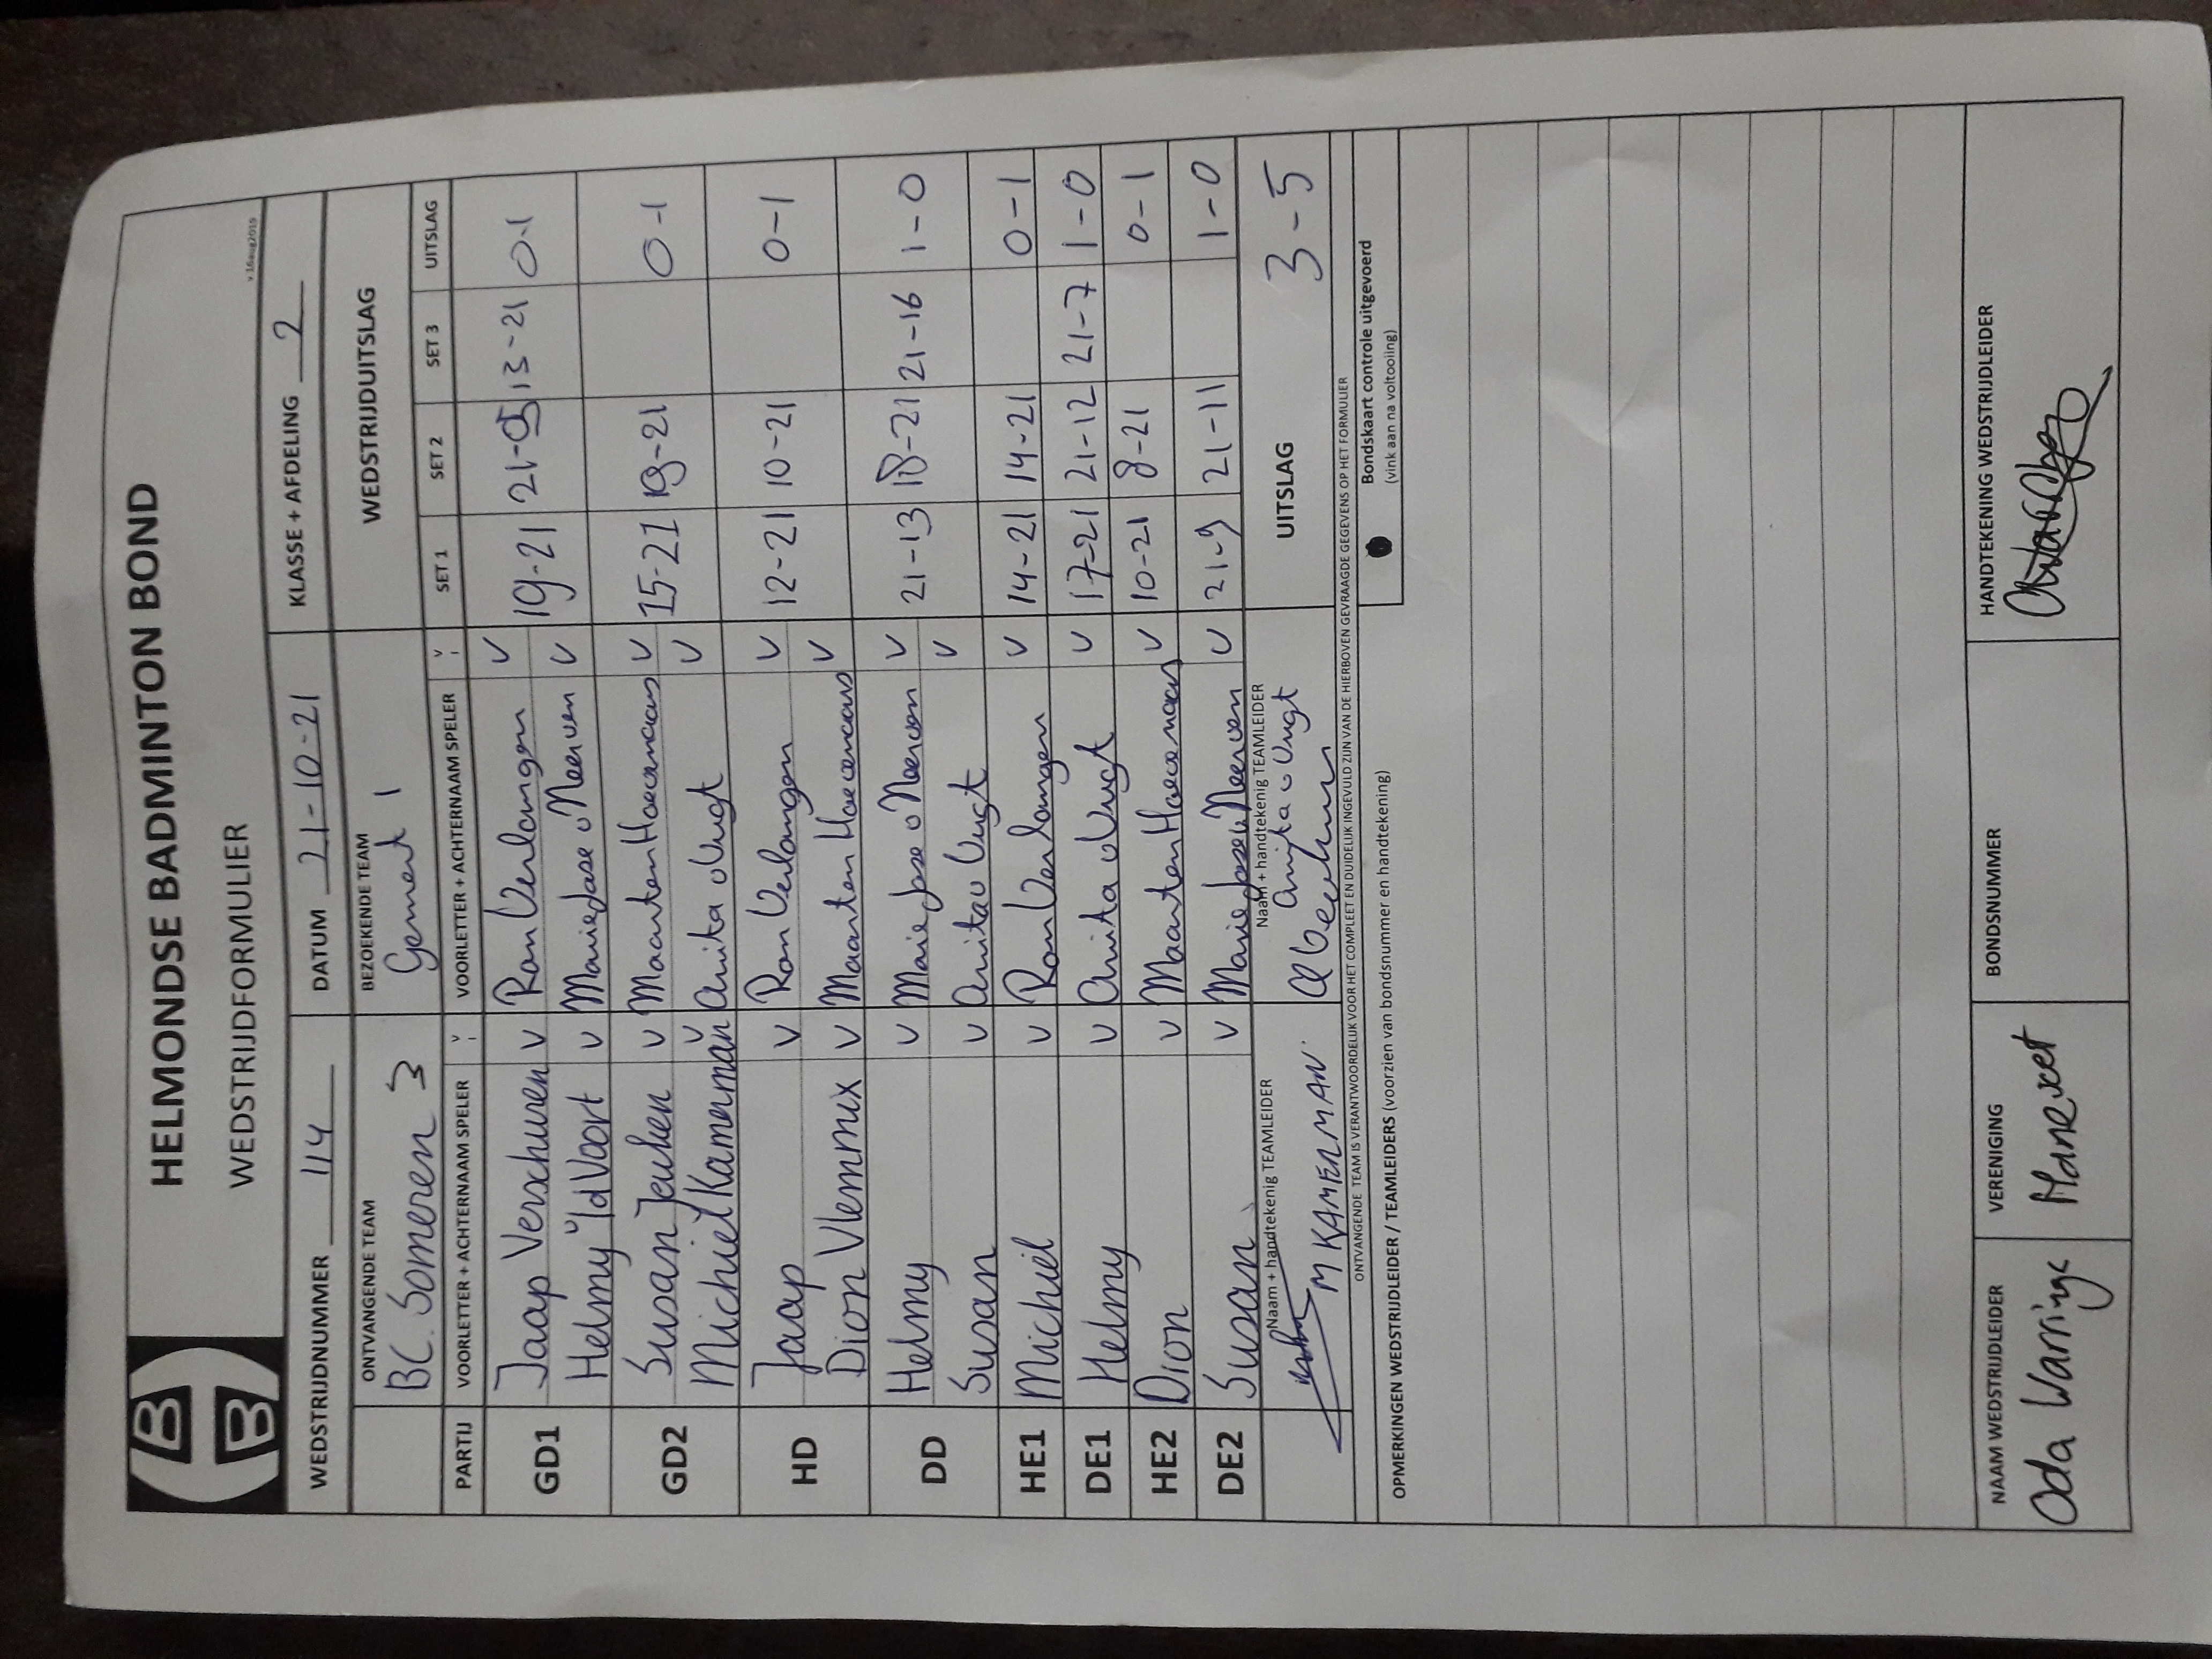 HELMONDSE BADMINTON BOND
WEDSTRIJDFORMULIER
v.16aug2019
WEDSTRIJDNUMMER 114 DATUM 21-10-21 KLASSE + AFDELING 2
ONTVANGENDE TEAM BEZOEKENDE TEAM WEDSTRIJDUITSLAG
BC. Someren 3 Gemert 1
PARTIJ VOORLETTER + ACHTERNAAM SPELER V VOORLETTER + ACHTERNAAM SPELER V SET 1 SET 2 SET 3 UITSLAG
GD1 Jaap Verschuren V Ron Verlangen V 19-21 21- 13-21 0-1
Helmy v/d Voort V Marie Jose v Neerven V
GD2 Susan Jeuken V Maarten Hoecemans V 15-21 19-21 0-1
Michiel Kamerman V Anita v Vugt V
HD Jaap V Ron Verlangen V 12-21 10-21 0-1
Dion Vlemmix V Maarten Hoecemans V
DD Helmy V Marie Jose v Neerven V 21-13 18-21 21-16 1-0
Susan V Anita v Vugt V
HE1 Michiel V Ron Verlangen V 14-21 14-21 0-1
DE1 Helmy V Anita v Vugt V 17-21 21-12 21-7 1-0
HE2 Dion V Maarten Hoecemans V 10-21 8-21 0-1
DE2 Susan V Marie Jose v Neerven V 21-9 21-11 1-0
Naam + handtekenig TEAMLEIDER Naam + handtekenig TEAMLEIDER UITSLAG 3-5
M KAMERMAN. Anita v Vugt
ONTVANGENDE TEAM IS VERANTWOORDELIJK VOOR HET COMPLEET EN DUIDELIJK INGEVULD ZIJN VAN DE HIERBOVEN GEVRAAGDE GEGEVENS OP HET FORMULIER
OPMERKINGEN WEDSTRIJDLEIDER / TEAMLEIDERS (voorzien van bondsnummer en handtekening)
Bondskaart controle uitgevoerd
(vink aan na voltooiing)
NAAM WEDSTRIJDLEIDER VERENIGING BONDSNUMMER HANDTEKENING WEDSTRIJDLEIDER
Oda